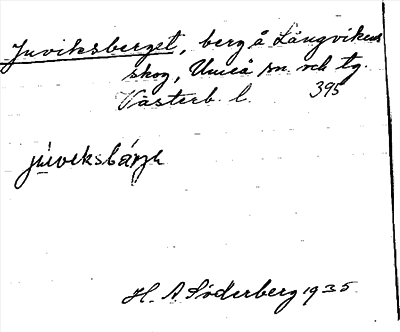 Juviksberget, berg å Långvikens
skog, Umeå sn. och tg.
Västerb. l. 395
júveksbárjh
H. A. Söderberg 1935.